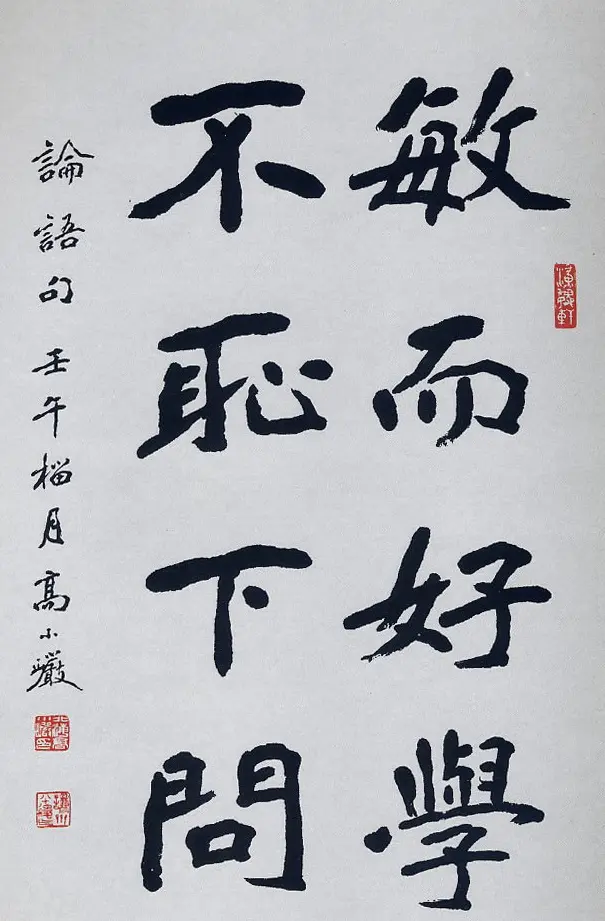 敏而好學
不恥下問
論語句 壬午榴月 高小巖